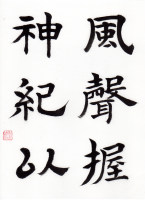 風聲握
神紀以